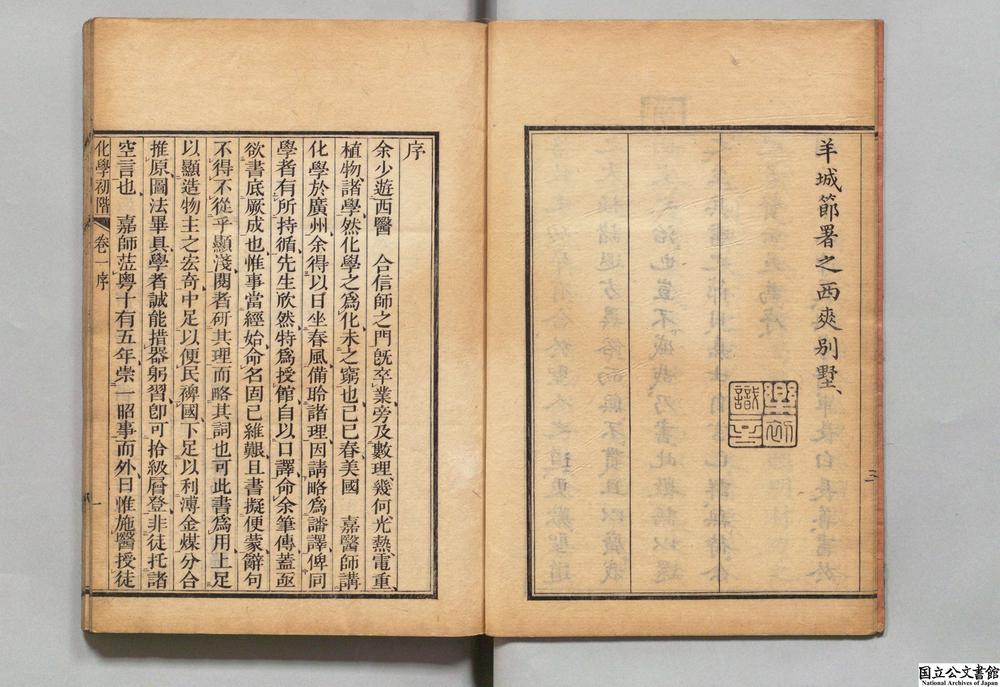 羊城節署之西夾别墅、
三
序
余少遊西醫　合信師之門旣卒業旁及數理幾何光熱電重、
植物諸學然化學之爲化未之窮也己巳春美國　嘉醫師講
化學於廣州余得以日坐春風備聆諸理因請略爲譒譯俾同
學者有所持循先生欣然特爲授館自以口譯命余筆傳蓋亟
欲書底厥成也惟事當經始命名固已維艱且書擬便蒙辭句
不得不從乎顯淺閱者研其理而略其詞也可此書爲用上足
以顯造物主之宏奇中足以便民裨國下足以利溥金煤分合
推原圖法畢具學者誠能措器躬習卽可拾級層登非徒托諸
空言也　嘉師蒞粤十有五年崇一昭事而外日惟施醫授徒
化學初階　卷一序　一
国立公文書館
National Archives of Japan